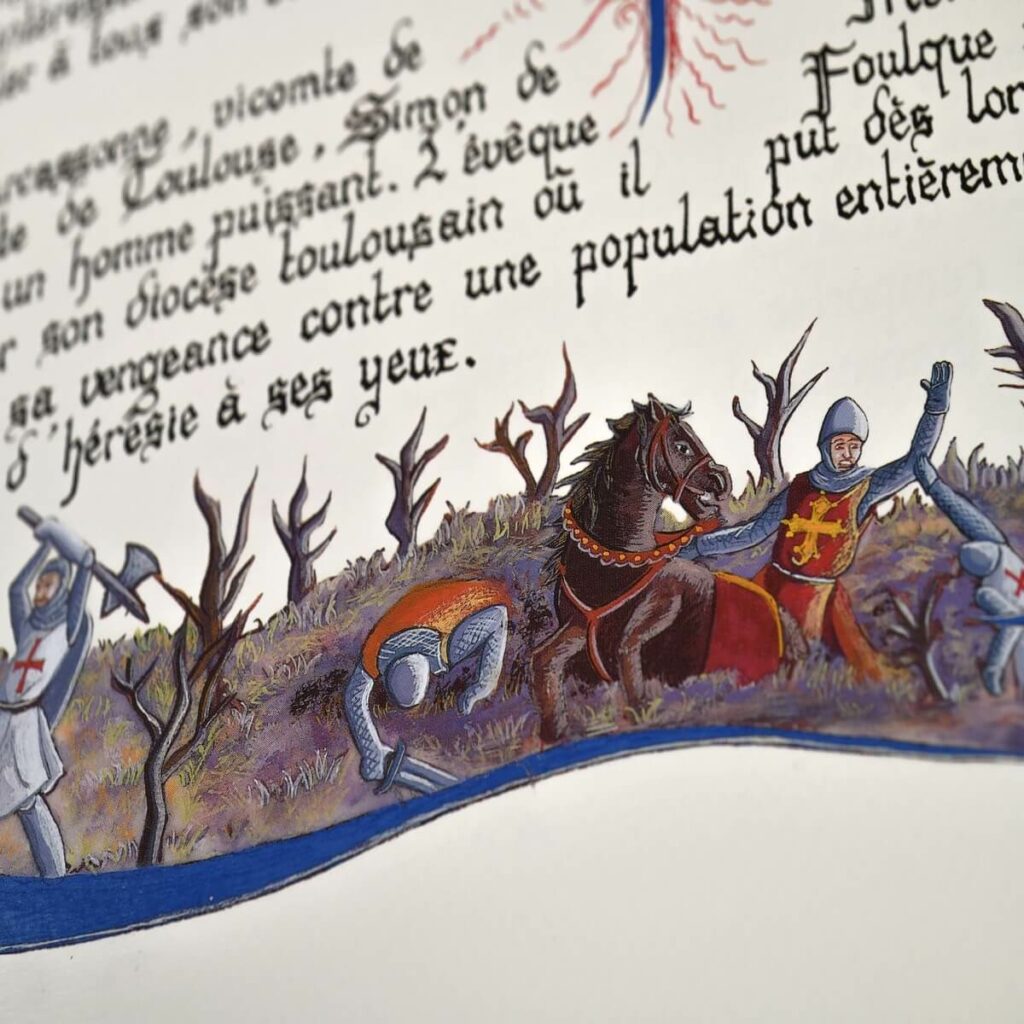 à tous son
rcassonne, vicomte de
te de Toulouse. Simon de
un homme puissant. L'évêque Foulque
r son diocèse toulousain où il put dès lor
sa vengeance contre une population entièrem
d'hérésie à ses yeux.